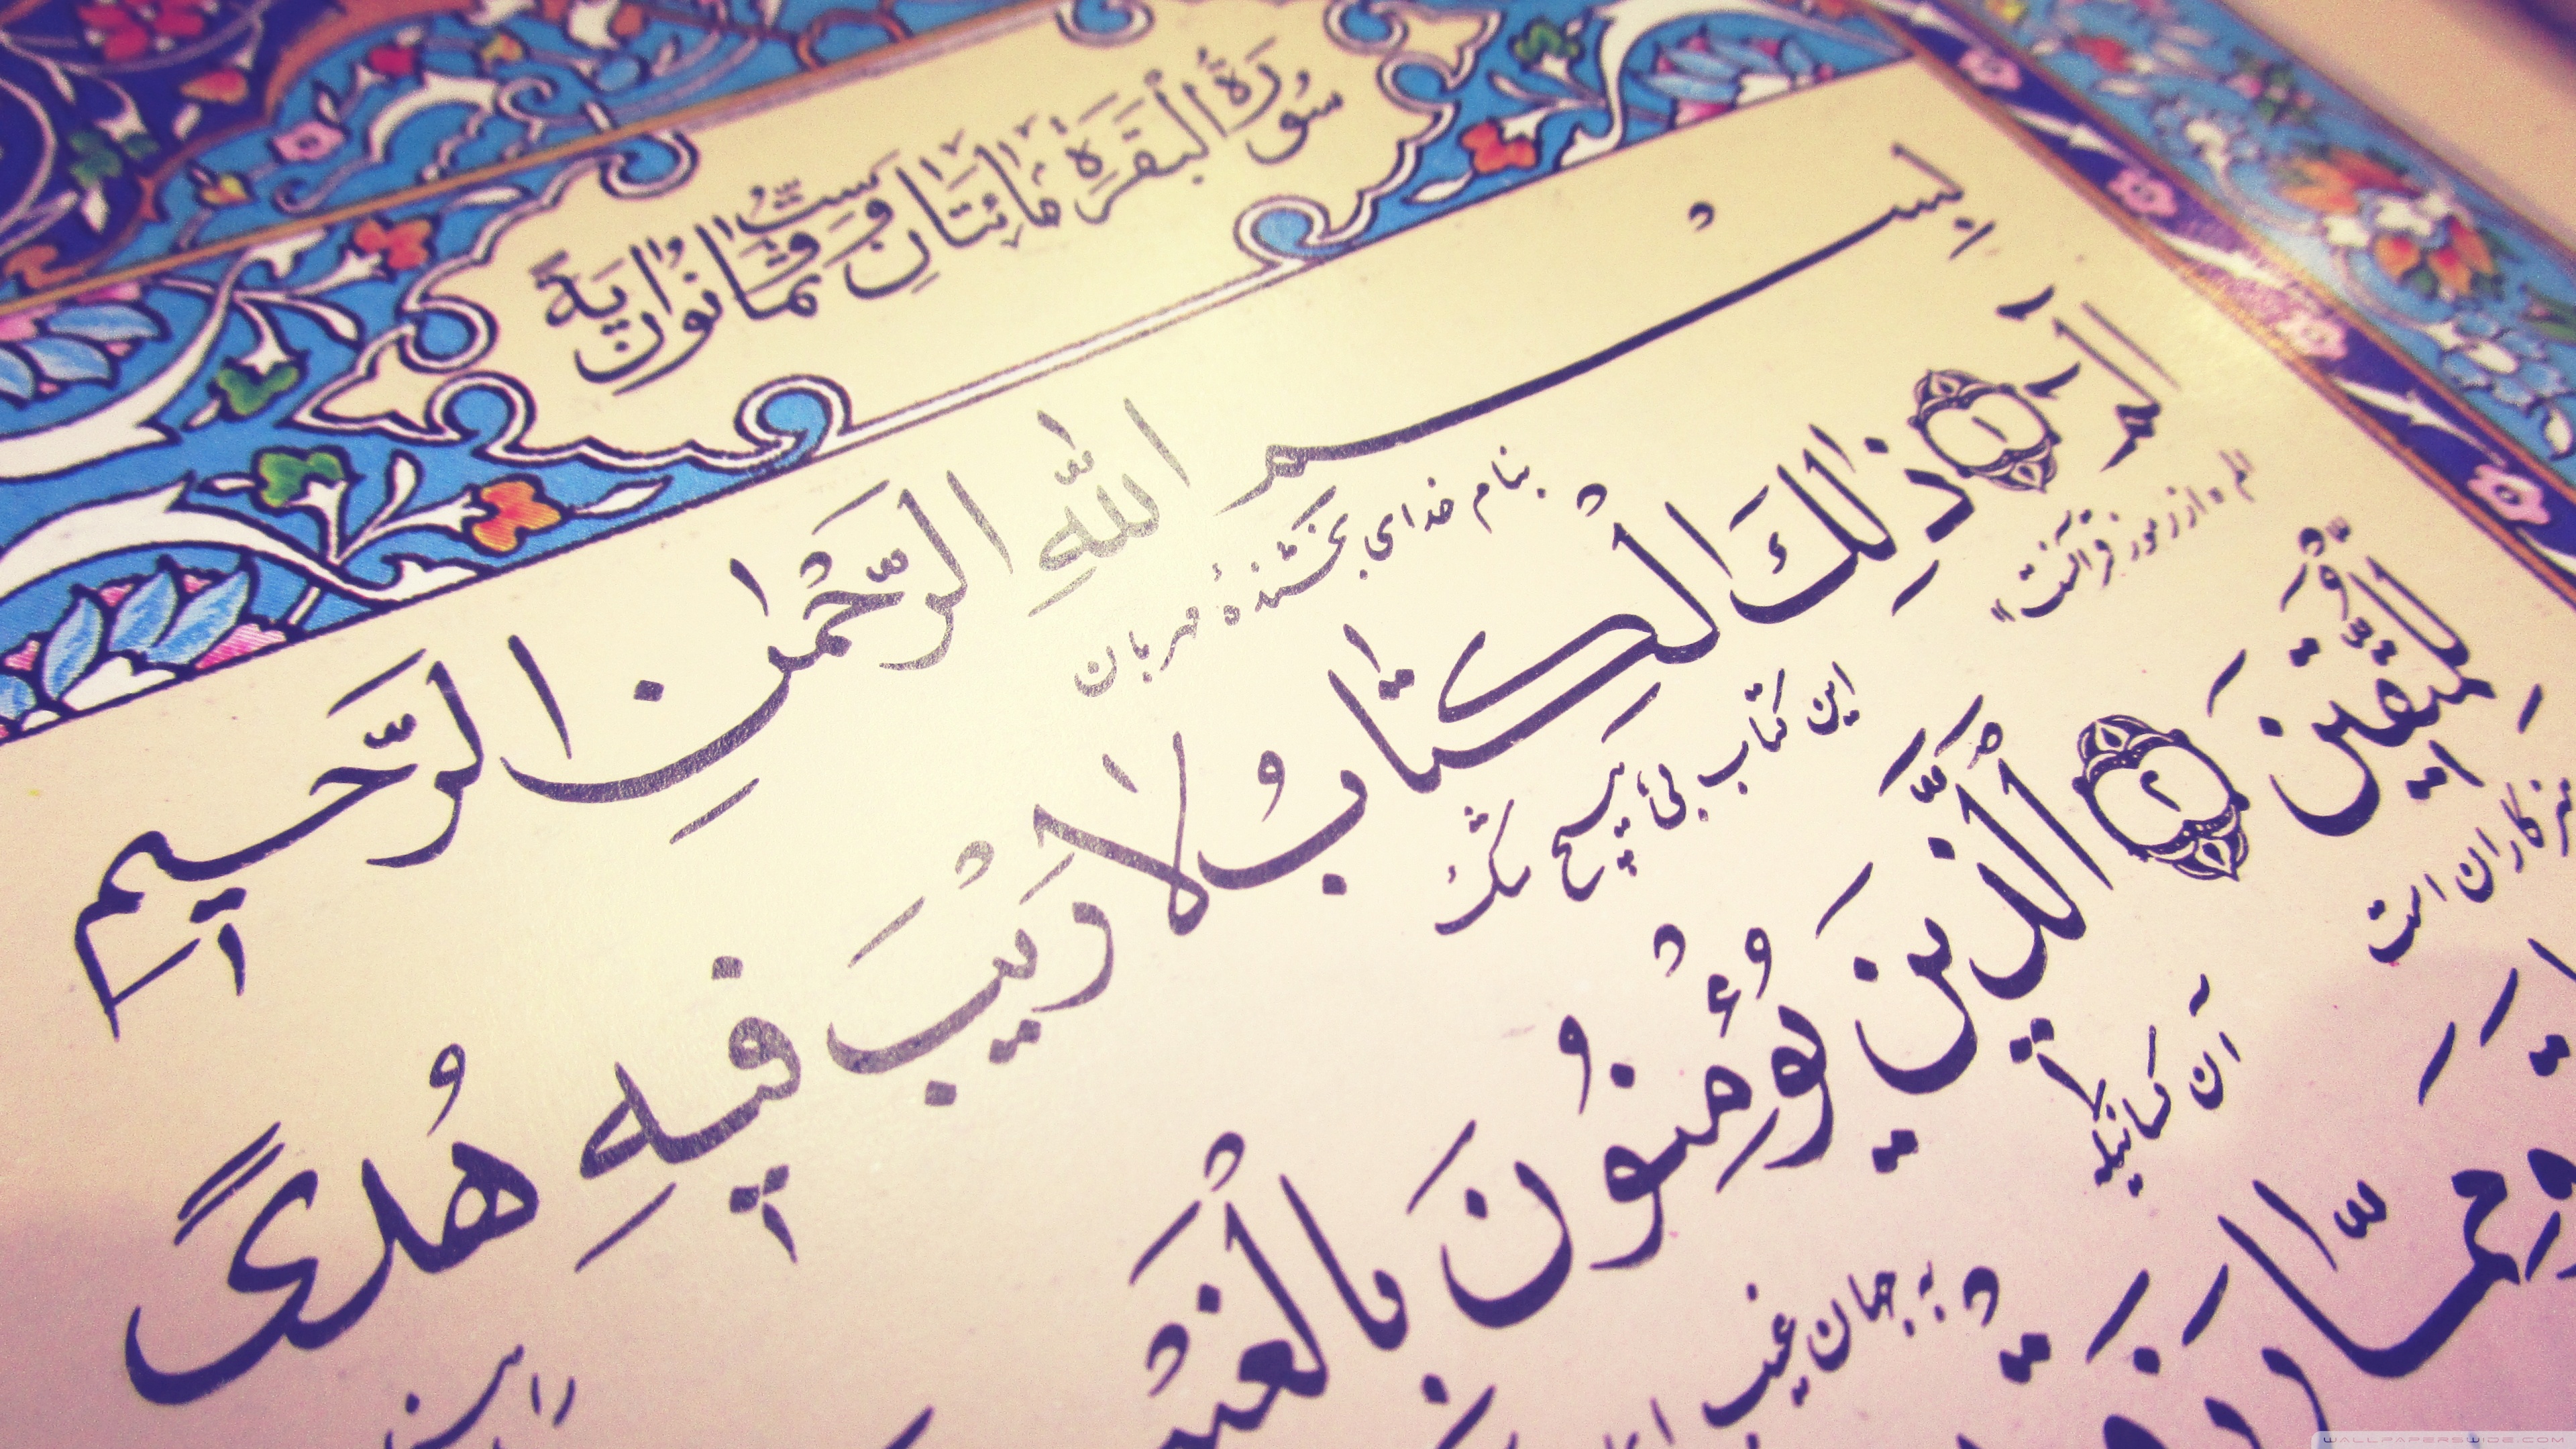 سُورَةُ الْبَقَرَةِ مِائَتَانِ وَسِتٌّ وَثَمَانُونَ آيَةً
بِسْمِ اللّٰهِ الرَّحْمٰنِ الرَّحِيمِ
بنام خدای بخشندهٔ مهربان
الٓمٓ ﴿١﴾ ذٰلِكَ الْكِتَابُ لَا رَيْبَ فِيهِ هُدًى
از رموز قرآنست
این کتاب بی هیچ شک
را
لِلْمُتَّقِينَ ﴿٢﴾ اَلَّذِينَ يُؤْمِنُونَ بِالْغَيْبِ
کاران است
آن کسانیکه
به جهان غیب
وَمِمَّا
WALLPAPERSWIDE.COM